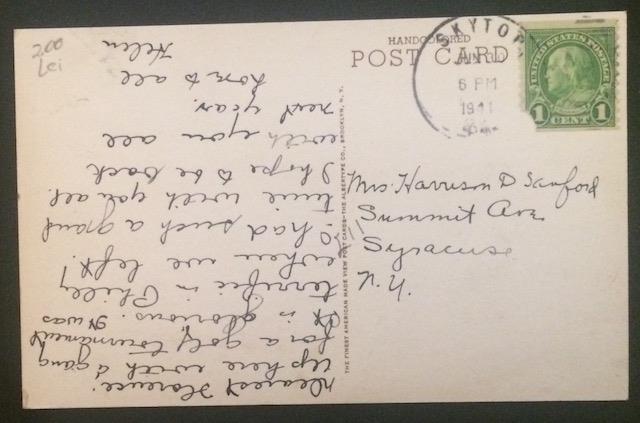 Dearest Florence:
Up here with a gang
for a golf tournament
It is glorious. It was
terrific in Philly
when we left!
I had such a grand
time with you all.
I hope to be back
with you all
next year.
Love to all
Helen
200
Lei
HANDCOLORED
POST CARD
SKYTOP
JUN
6 PM
1941
UNITED STATES POSTAGE
1 CENT 1
Mrs Harrison D Sanford
Summit Ave.
Syracuse
N.Y.
THE FINEST AMERICAN MADE VIEW POST CARDS—THE ALBERTYPE CO., BROOKLYN, N. Y.